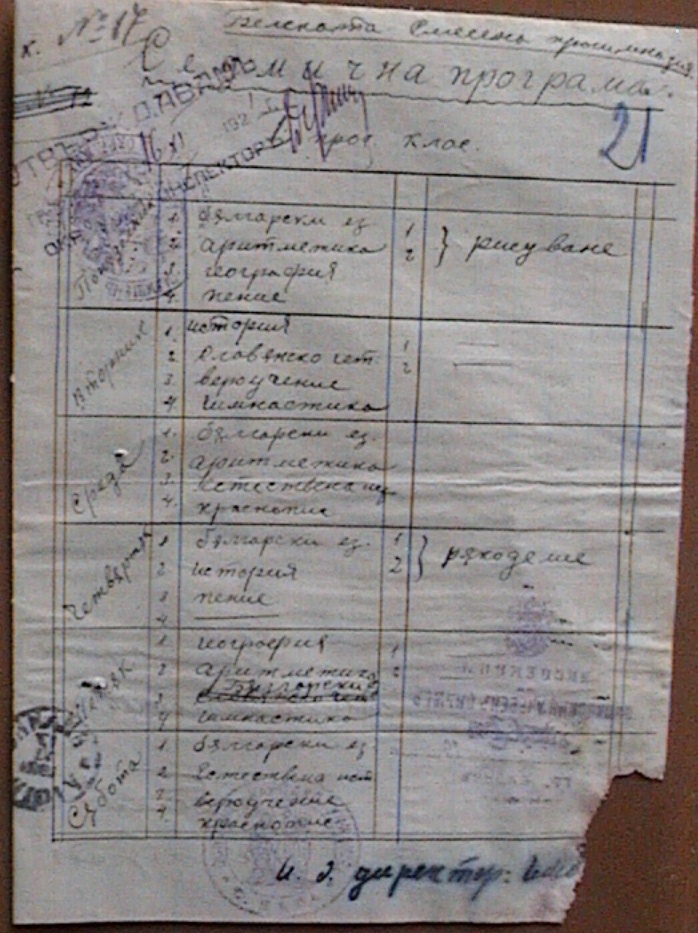 к. № 17
Белската Смесена прогимназия
Седмична програма.
21
прог. клас.
Понеделник
1. български ез. 1 } рисуване
2. аритметика 2
3. география
4. пение
Вторник
1. история 1
2. Славянско чет. 2
3. вероучение
4. гимнастика
Сряда
1. български ез.
2. аритметика
3. естествена ис
4. краснопис
Четвъртък
1 български ез. 1 } ръкоделие
2 история 2
3 пение
4
Петък
1 география 1
2 аритметика 2
3 български
4 гимнастика
Събота
1 български ез
2 Естествена ист
3 вероучение
4 краснопис
И. д. директор: